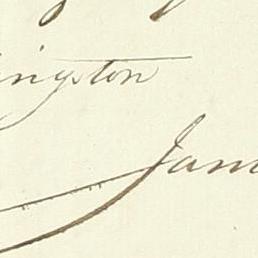 ingston
Jam